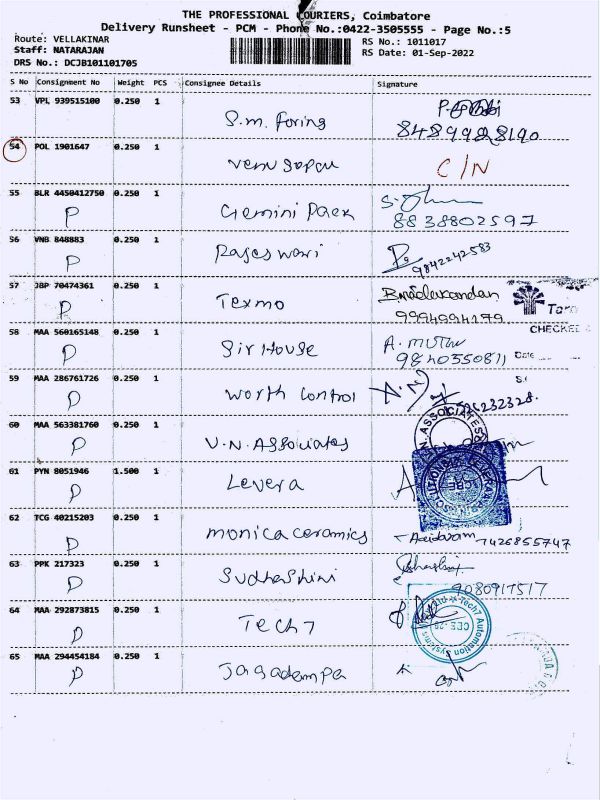 THE PROFESSIONAL COURIERS, Coimbatore
Delivery Runsheet - PCM - Phone No.:0422-3505555 - Page No.:5
Route: VELLAKINAR
RS No.: 1011017
Staff: NATARAJAN
RS Date: 01-Sep-2022
DRS No.: DCJB101101705
S No Consignment No Weight PCS Consignee Details Signature
53 VPL 939515100 0.250 1
S.m. foring
8489928190
54 POL 1901647 0.250 1
venu gopau C/N
55 BLR 4450412750 0.250 1
P Gemini Pack 8838802597
56 VNB 848883 0.250 1
P Rajeswari 9842242583
57 JBP 70474361 0.250 1
P Texmo 9994994179
CHECKED
58 MAA 560165148 0.250 1
P Sir House A. muthu 9840350811 Date
59 MAA 286761726 0.250 1
P worth control
60 MAA 563381760 0.250 1
P V.N. Associates N. ASSOCIATES
61 PYN 8051946 1.500 1
P Levera
62 TCG 40215203 0.250 1
P monica ceramics 7426855747
63 PPK 217323 0.250 1
P Sudhashini 9080917517
64 MAA 292873815 0.250 1
P Tech 7 Ltd * Tech7 Automation Systems
65 MAA 294454184 0.250 1
P Jagadempa